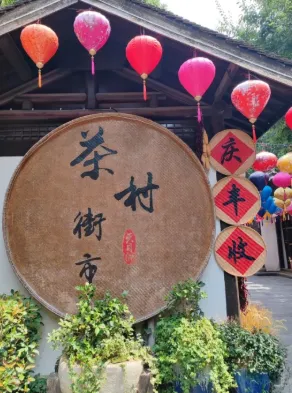 茶村
街市
庆
丰
收